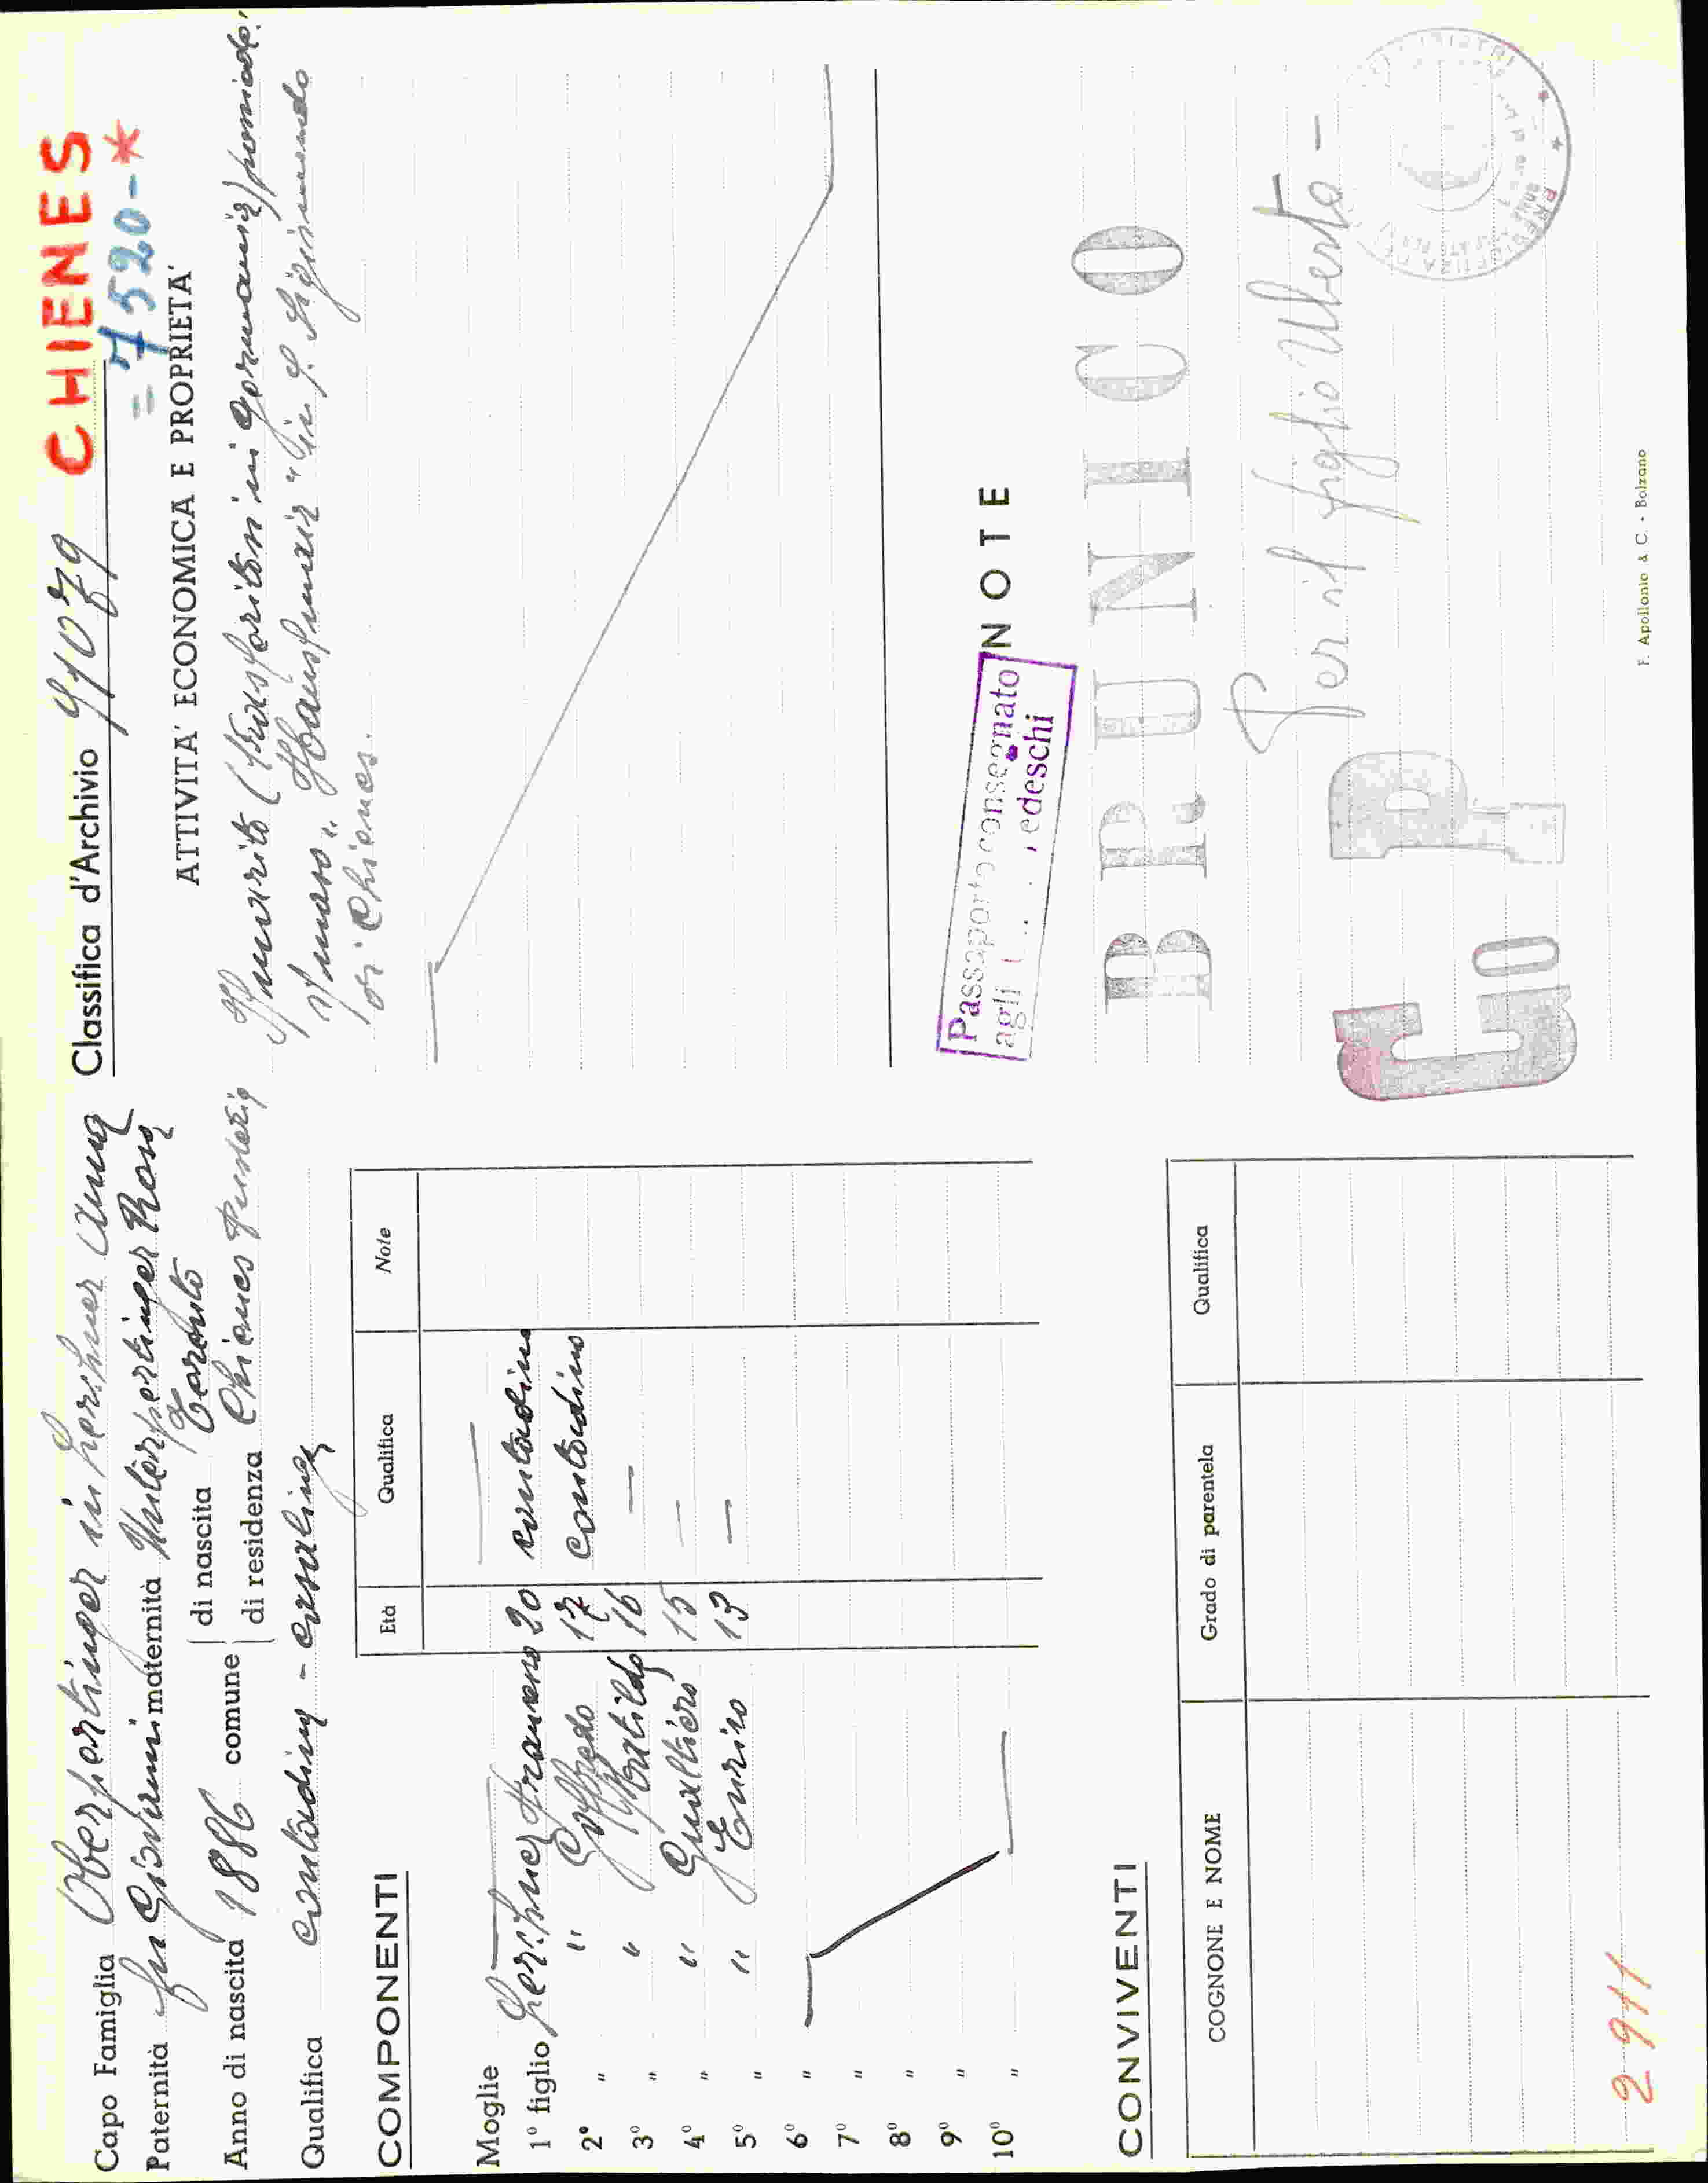 Capo Famiglia Oberpertinger in Lerchner Anna
Paternità fu Giovanni maternità Unterpertinger Rosa
Anno di nascita 1886 comune
di nascita Terento
di residenza Chienes
Qualifica contadina - casalinga
COMPONENTI
Età Qualifica Note
Moglie
1º figlio Lerchner Francesco 20 contadino
2º " " Goffredo 17 contadino
3º " " Matilde 16 —
4º " " Gualtiero 15 —
5º " " Enrico 13 —
6º "
7º "
8º "
9º "
10º "
CONVIVENTI
COGNONE E NOME Grado di parentela Qualifica
2911
Classifica d'Archivio 41079 CHIENES
= 7520 - *
ATTIVITA' ECONOMICA E PROPRIETA'
Il marito (trasferitosi in Germania)
il maso
di Chienes.
NOTE
Passaporto consegnato
agli tedeschi
BRUNICO
Per il figlio Uberto -
Go P.
F. Apollonio & C. - Bolzano